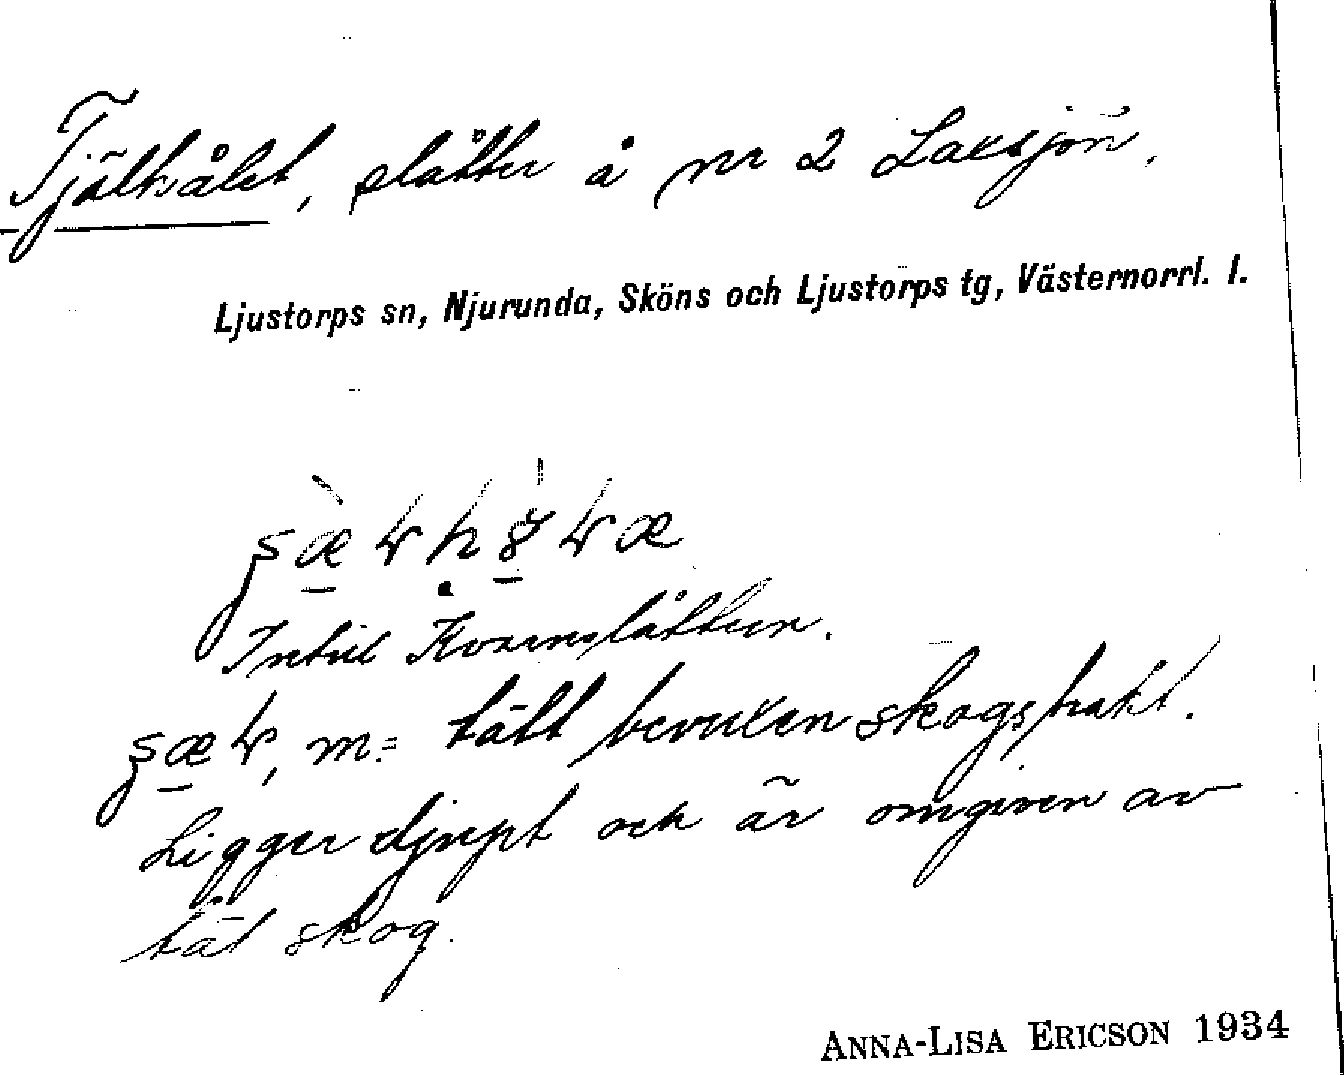 Tjälhålet, slåtter å nr 2 Laxsjön.
Ljustorps sn, Njurunda, Sköns och Ljustorps tg, Västernorrl. l.
Intill Kvarnslåttern.
m = tätt bevuxen skogstrakt.
Ligger djupt och är omgiven av
tät skog.
ANNA-LISA ERICSON 1934